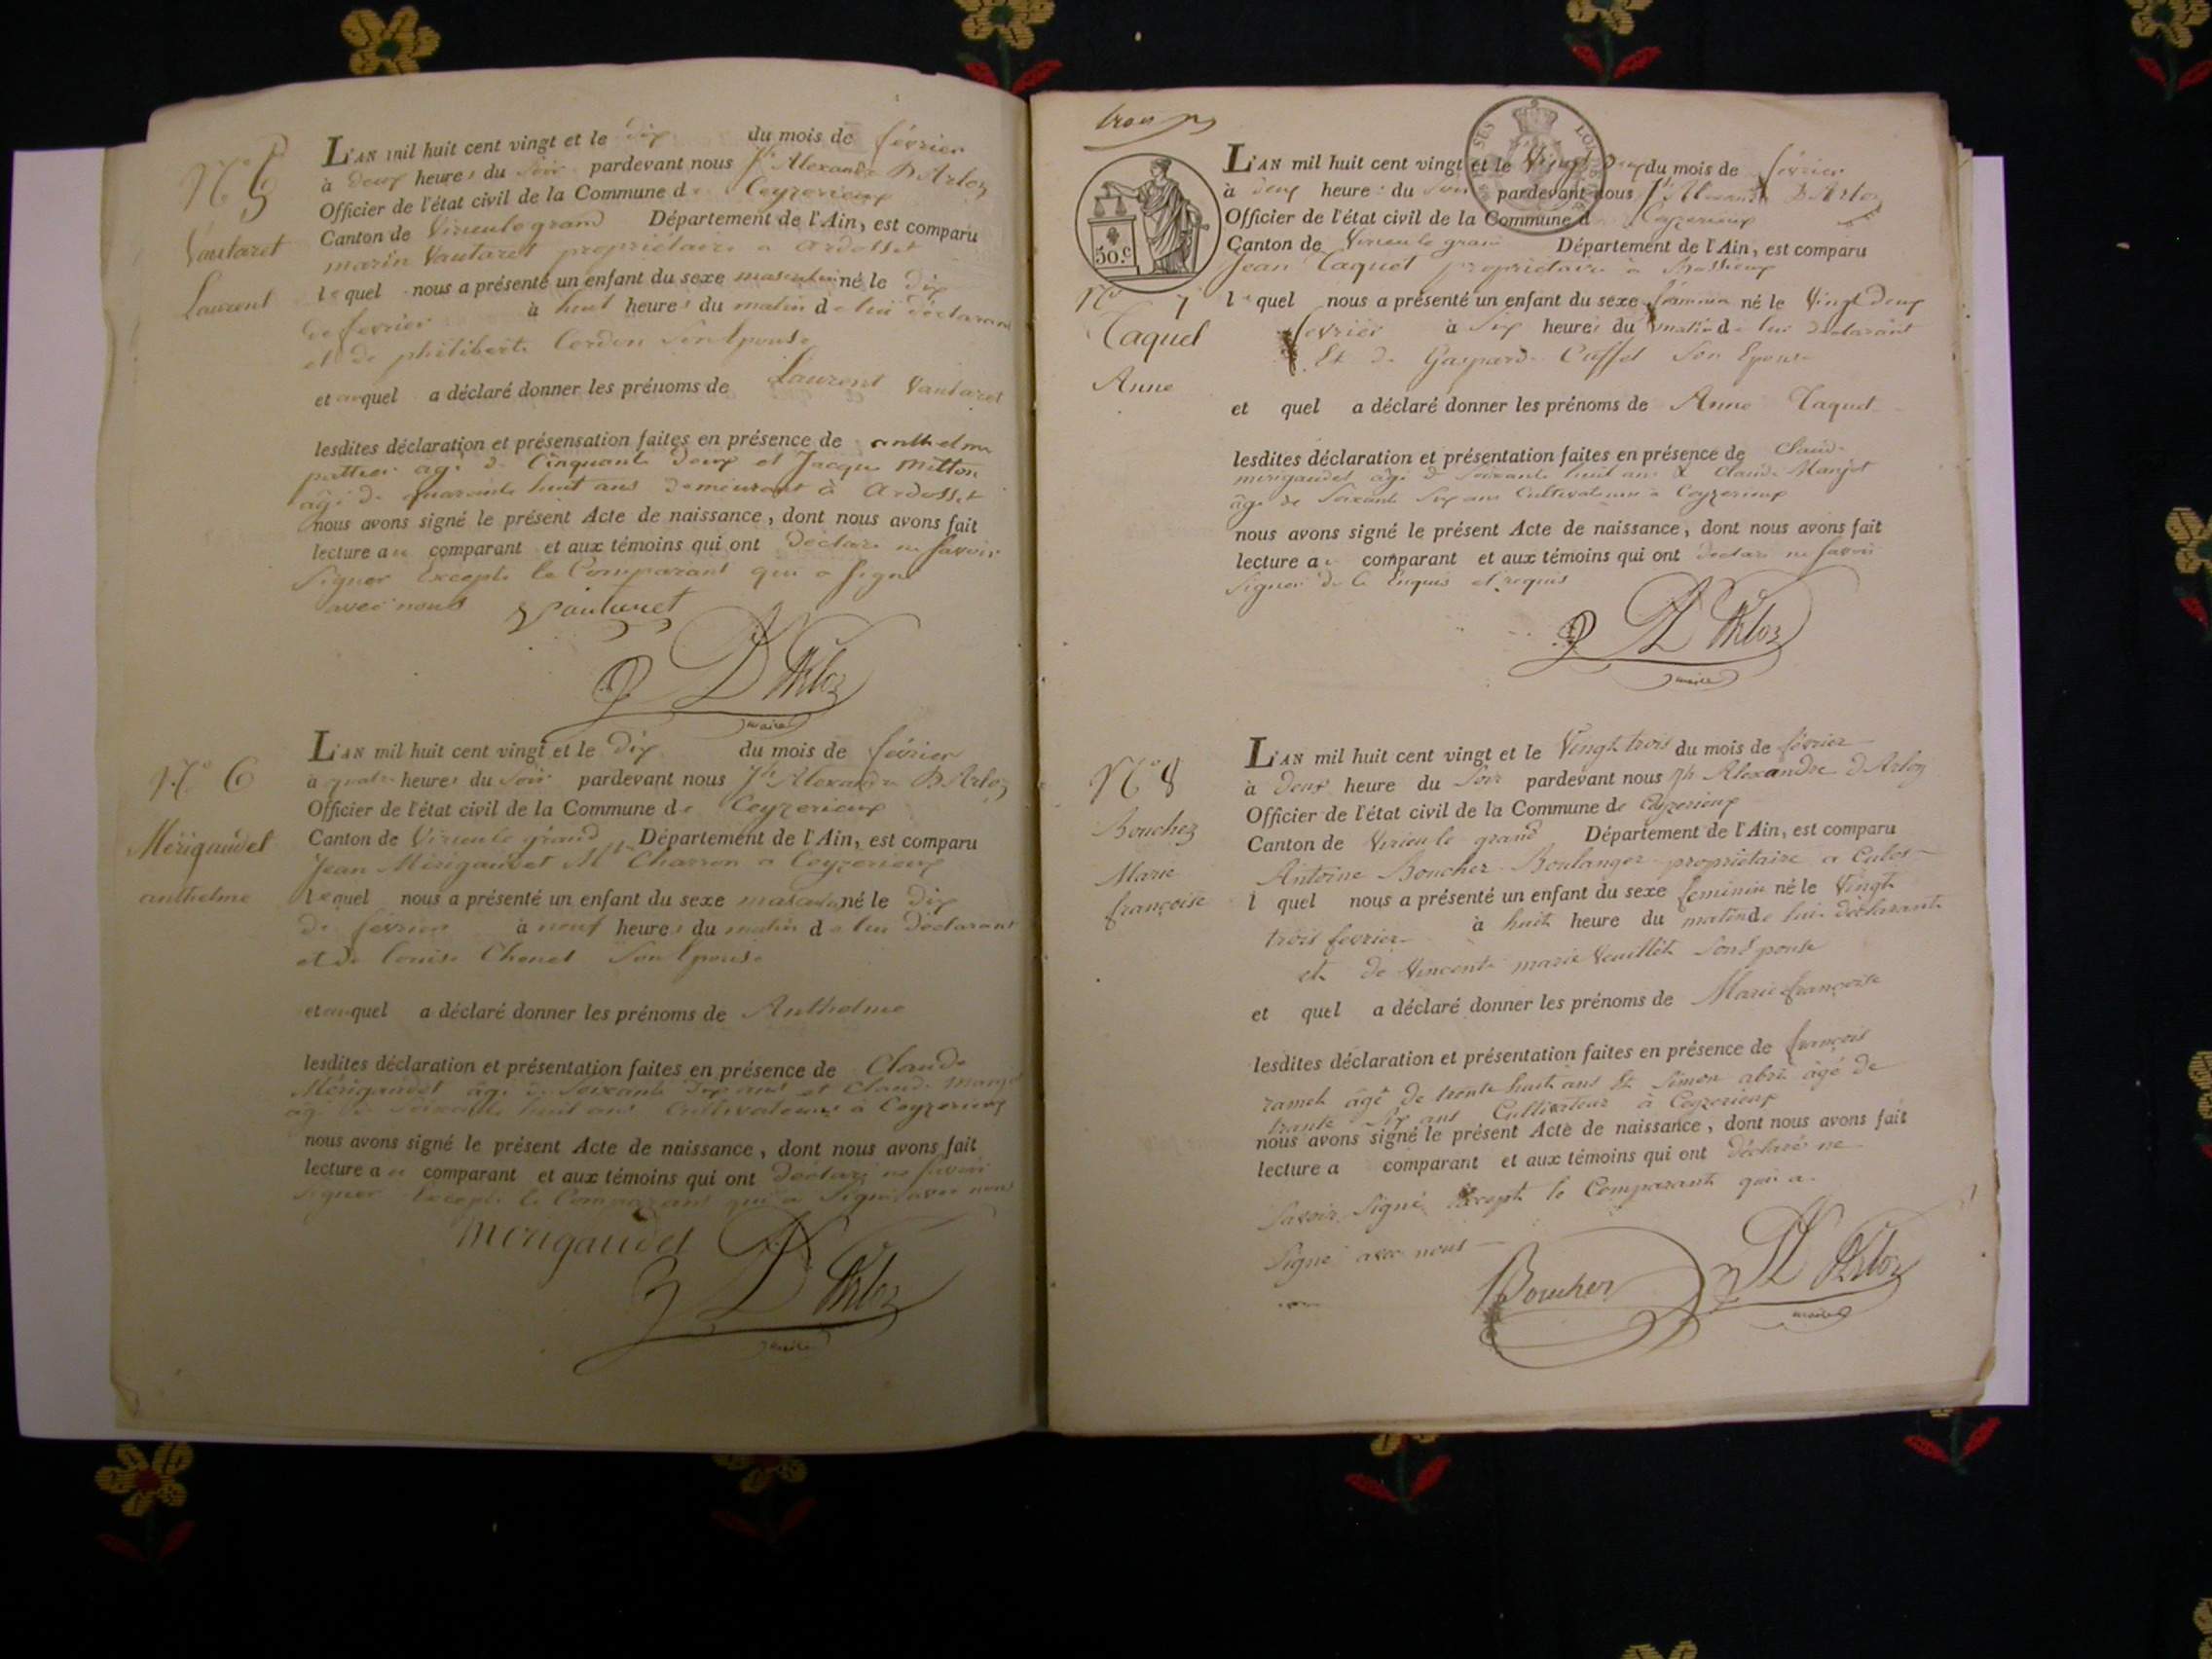 N° 5
Vautaret
Laurent
L'AN mil huit cent vingt et le dix du mois de février
à deux heures du soir pardevant nous Jh Alexandre D'Arloz
Officier de l'état civil de la Commune de Ceyzerieux
Canton de Virieu le grand Département de l'Ain, est comparu
marin Vautaret propriétaire a ardosset
lequel nous a présenté un enfant du sexe masculin né le dix
de fevrier à huit heures du matin de lui déclarant
et de philiberte Cordon Son Epouse
et auquel a déclaré donner les prénoms de Laurent Vautaret
lesdites déclaration et présensation faites en présence de anthelme
agé de Cinquante deux et Jacque Mitton
âgé de quarante huit ans demeurant à ardosset
nous avons signé le présent Acte de naissance, dont nous avons fait
lecture au comparant et aux témoins qui ont déclaré ne Savoir
Signer Excepté le Comparant qui a Signé
avec nous Vautaret
D'Arloz
maire
N° 6
Mérigaudet
anthelme
L'AN mil huit cent vingt et le dix du mois de février
à quatre heures du Soir pardevant nous Jh Alexandre D'Arloz
Officier de l'état civil de la Commune de Ceyzerieux
Canton de Virieu le grand Département de l'Ain, est comparu
Jean Mérigaudet Md Charron a Ceyzerieux
lequel nous a présenté un enfant du sexe masculin né le dix
de février à neuf heures du matin de lui déclarant
et de Louise Chenet Son Epouse
et auquel a déclaré donner les prénoms de Anthelme
lesdites déclaration et présentation faites en présence de Claude
Mérigaudet âgé de Soixante dix ans et Claude Manjot
agé de Soixante huit ans Cultivateurs à Ceyzerieux
nous avons signé le présent Acte de naissance, dont nous avons fait
lecture au comparant et aux témoins qui ont déclaré ne Savoir
Signer Excepté le Comparant qui a Signé avec nous
merigaudet
D'Arloz
maire
trois
50.c
N° 7
Taquet
Anne
L'AN mil huit cent vingt et le Vingt Deux du mois de février
à deux heures du Soir pardevant nous Jh Alexandre D'Arloz
Officier de l'état civil de la Commune de Ceyzerieux
Canton de Virieu le grand Département de l'Ain, est comparu
Jean Taquet propriétaire à
lequel nous a présenté un enfant du sexe féminin né le Vingt Deux
fevrier à Six heures du matin de lui déclarant
Et de Gasparde Cuffet Son Epouse
et quel a déclaré donner les prénoms de Anne Taquet
lesdites déclaration et présentation faites en présence de Claude
merigaudet âgé de Soixante huit ans & Claude Manjot
âgé de Soixante Six ans Cultivateurs a Ceyzerieux
nous avons signé le présent Acte de naissance, dont nous avons fait
lecture au comparant et aux témoins qui ont déclaré ne Savoir
Signer de Ce Enquis et requis
D'Arloz
maire
N° 8
Boucher
Marie
françoise
L'AN mil huit cent vingt et le Vingt trois du mois de février
à Deux heure du Soir pardevant nous Jh Alexandre D'Arloz
Officier de l'état civil de la Commune de Ceyzerieux
Canton de Virieu le grand Département de l'Ain, est comparu
Antoine Boucher Boulanger propriétaire a Culos
l quel nous a présenté un enfant du sexe feminin né le Vingt
trois fevrier à huit heure du matin de lui déclarant
et de Vincente marie Veuillet Son Epouse
et quel a déclaré donner les prénoms de Marie françoise
lesdites déclaration et présentation faites en présence de françois
ramel âgé de trente huit ans Et Simon abri âgé de
trante Six ans Cultivateur à Ceyzerieux
nous avons signé le présent Acte de naissance, dont nous avons fait
lecture a comparant et aux témoins qui ont déclaré ne
Savoir Signé Excepté le Comparant qui a
Signé avec nous
Boucher
D'Arloz
maire